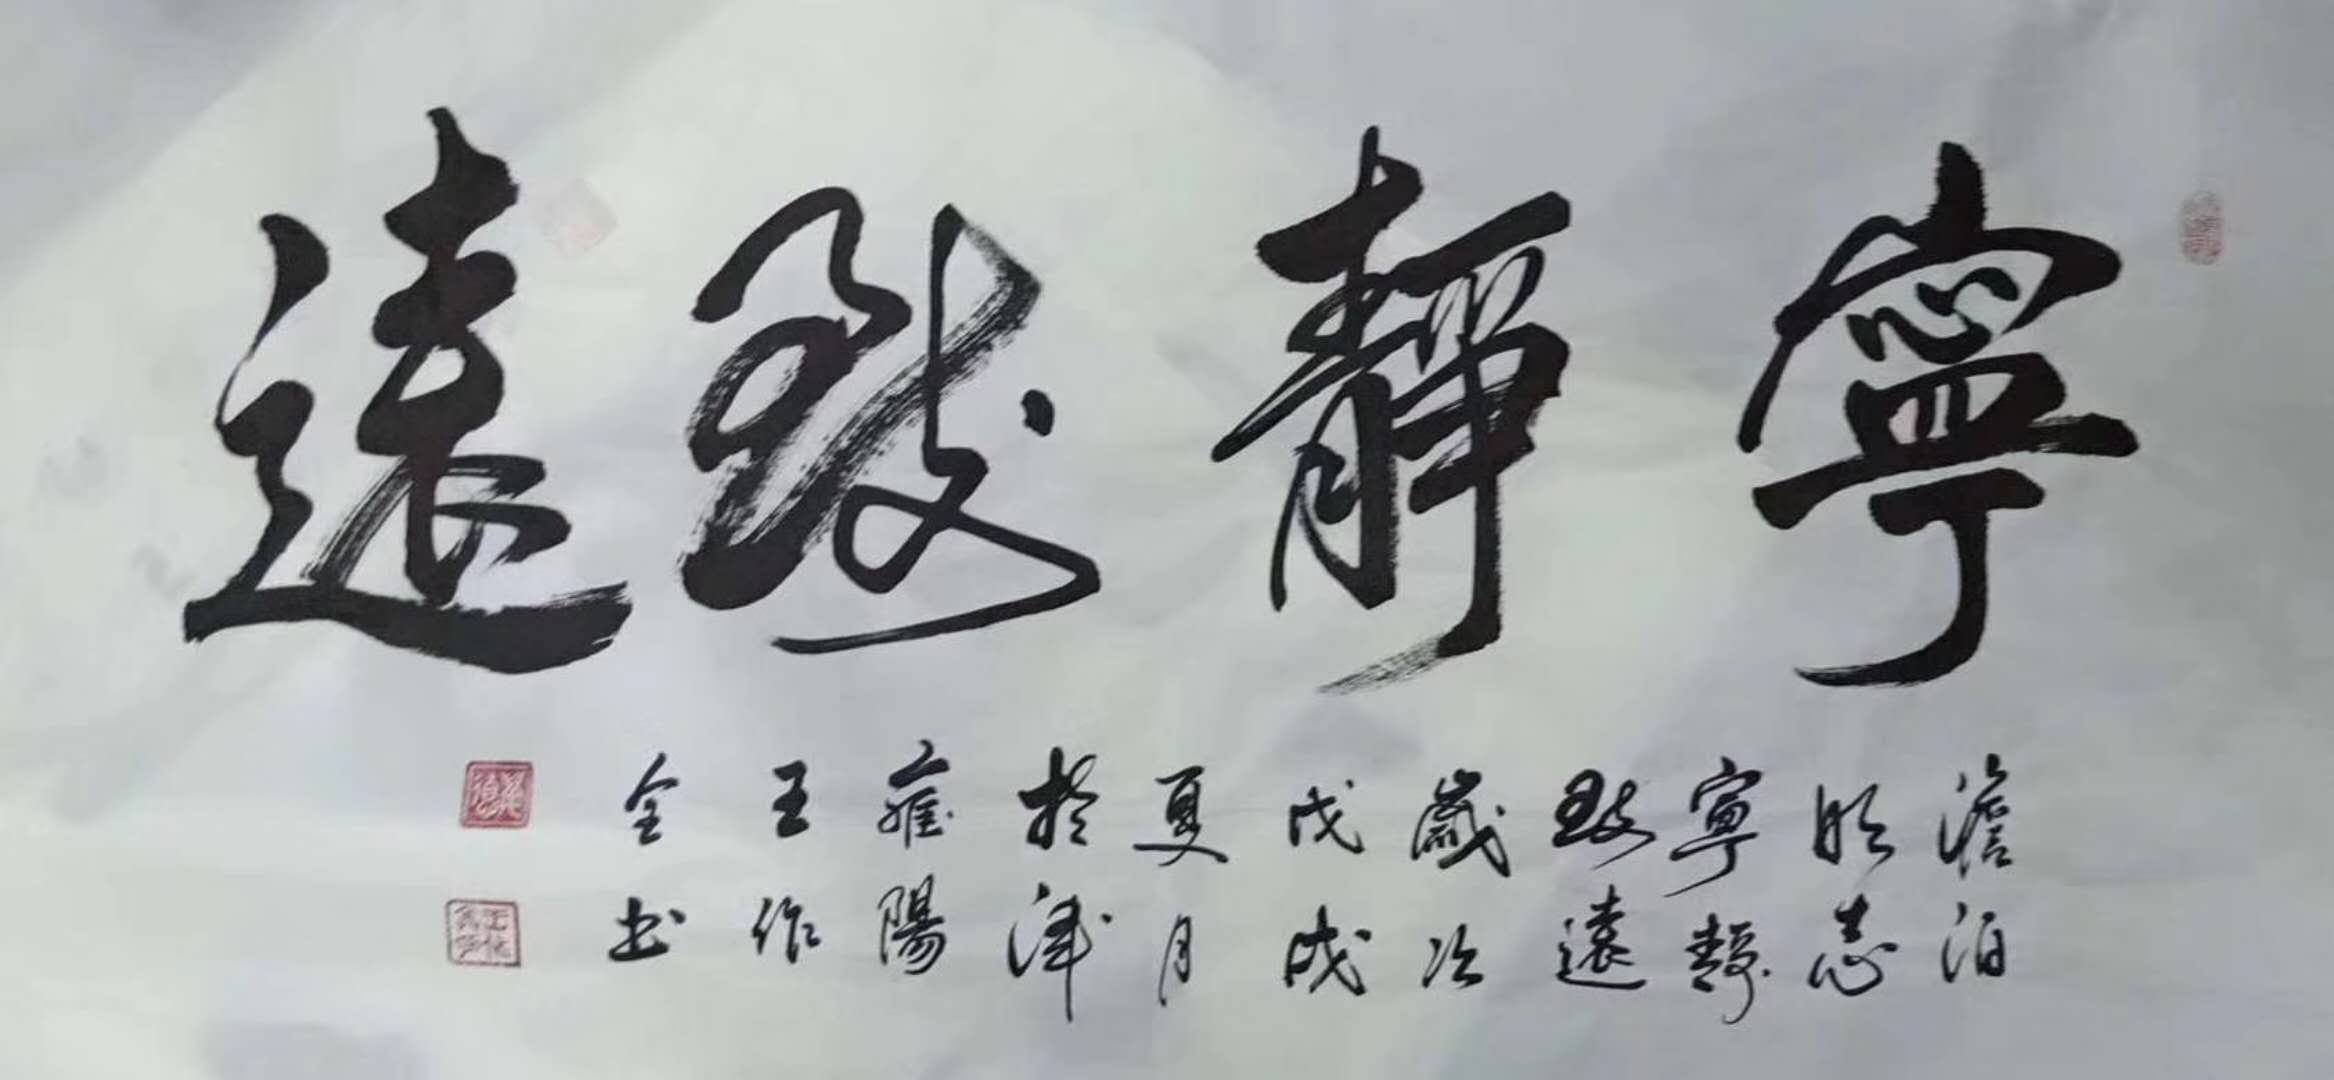 寧靜致遠
澹泊
明志
寧靜
致遠
歲次
戊戌
夏月
於津
雒陽
王作
全书